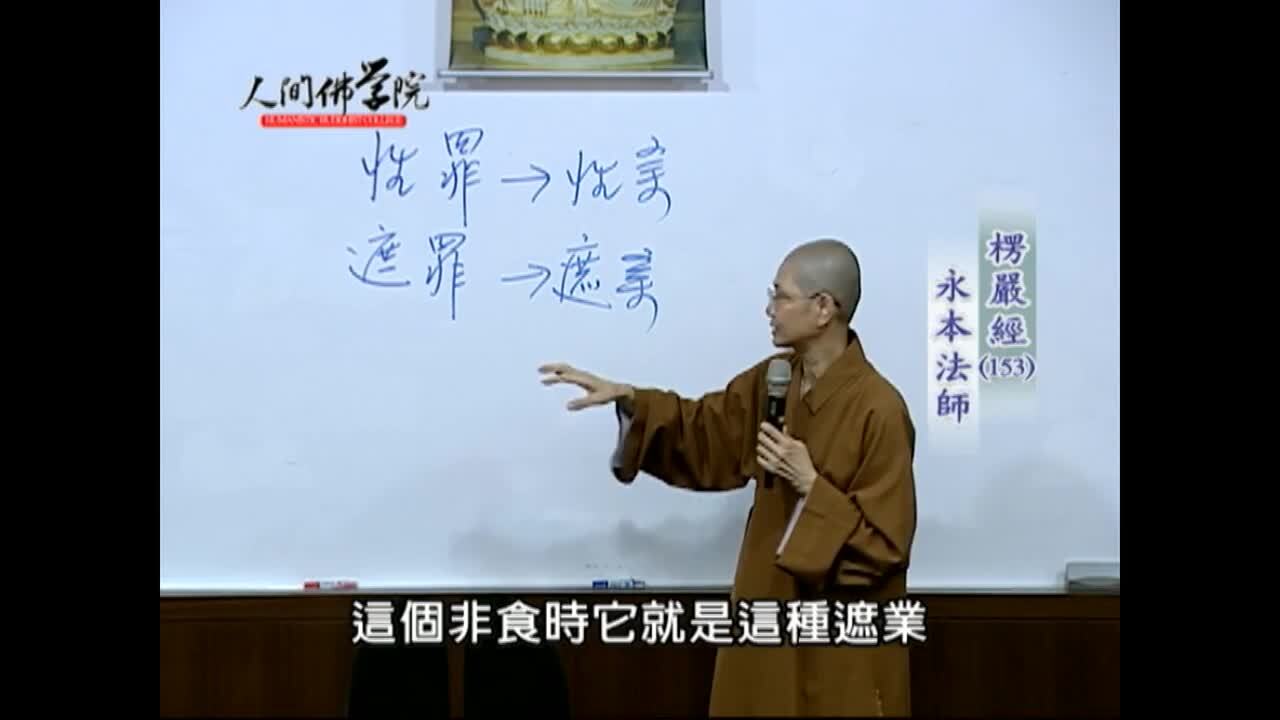 人間佛学院
HUMANISTIC BUDDHIST COLLEGE
性罪→性業
遮罪→遮業
楞嚴經
(153)
永本法師
這個非食時它就是這種遮業